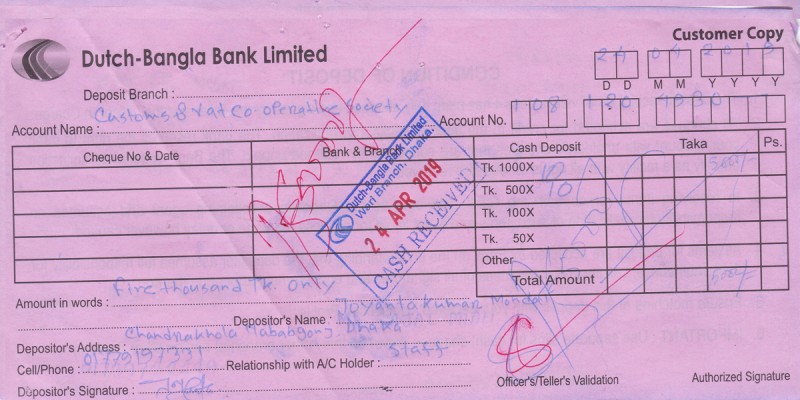 Customer Copy
Dutch-Bangla Bank Limited
24 04 2019
D D M M Y Y Y Y
Deposit Branch :
Customs & Vat Co-operative Society
Account Name :
Account No. 108 120
Cheque No & Date
Bank & Branch
Cash Deposit
Taka
Ps.
Tk. 1000X
5000/-
Tk. 500X
10
Tk. 100X
Tk. 50X
Other
Total Amount
5000/-
Dutch-Bangla Bank Limited
Wari Branch, Dhaka.
24 APR 2019
CASH RECEIVED
Five thousand Tk. only
Amount in words :
Depositor's Name : Joyanta Kumar Mondal
Depositor's Address : Dhaka
Cell/Phone : 01779197331 Relationship with A/C Holder : Staff
Depositor's Signature :
Officer's/Teller's Validation
Authorized Signature